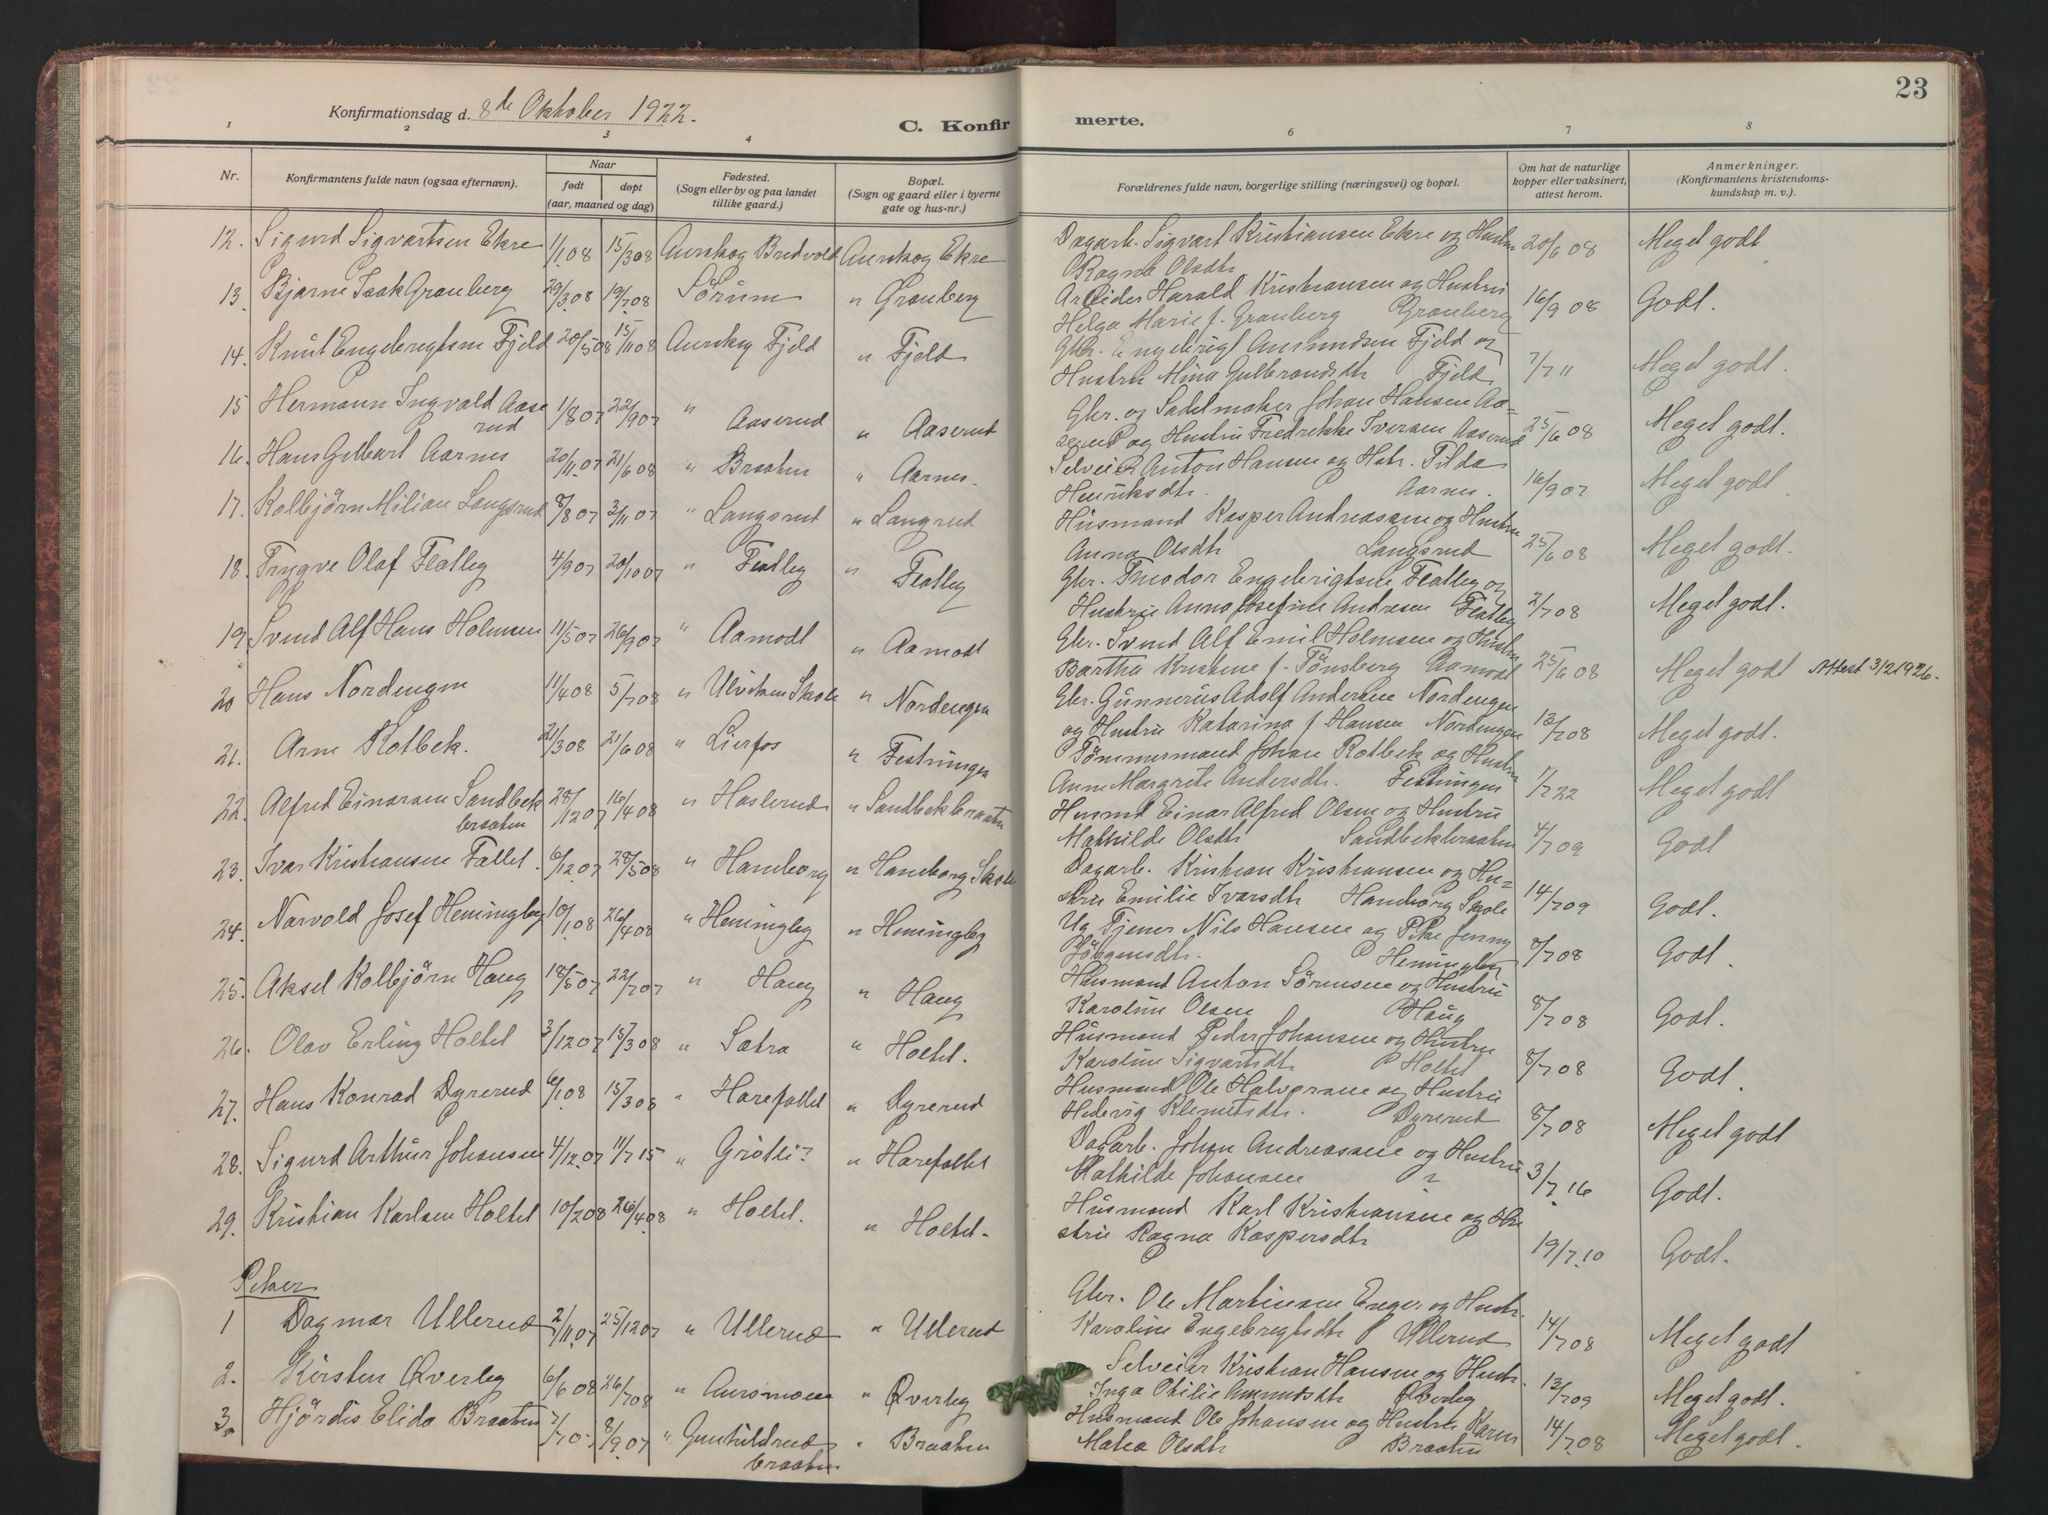 23
Konfirmationsdag d. 8de Oktober 1922.
C. Konfirmerte.
1 2 3 4 6 7 8
Nr. Konfirmantens fulde navn (ogsaa efternavn). Naar født døpt (aar, maaned og dag) Fødested. (Sogn eller by og paa landet tillike gaard.) Bopæl. (Sogn og gaard eller i byerne gate og hus-nr.) Forældrenes fulde navn, borgerlige stilling (næringsvei) og bopæl. Om hat de naturlige kopper eller vaksinert, attest herom. Anmerkninger. (Konfirmantens kristendomskundskap m. v.).
12. Sigurd Sigvartsen Ekre 1/1 08 15/3 08 Aurskog Bredvold Aurskog Ekre Dagarb. Sigvart Kristiansen Ekre og Hustru 20/6 08 Meget godt
Ragna Olsdtr
13. Bjarne Isak Granberg 29/3 08 19/7 08 Sörum " Granberg Arbeider Harald Kristiansen og Hustru 16/9 08 Godt.
Helga Marie f. Granberg Granberg
14. Knut Engebregtsen Fjeld 20/5 08 15/11 08 Aurskog Fjeld " Fjeld Gbr. Engebrigt Amundsen Fjeld og
Hustru Mina Gulbrandsdtr Fjeld 7/7 11 Meget godt.
15 Hermann Ingvald Aaserud 1/8 07 22/9 07 " Aaserud " Aaserud Gbr. og Sadelmaker Johan Hansen Aa=
serud og Hustru Fredrikke Iversen Aaserud 25/6 08 Meget godt.
16. Hans Gilbart Aarnes 20/11 07 21/6 08 " Braaten " Aarnes. Selveier Anton Hansen og Hstr. Tilda
Henriksdtr. Aarnes. 16/9 07 Meget godt
17. Kolbjörn Milian Langsrud 8/8 07 3/11 07 " Langsrud " Langsrud Husmand Kasper Andreassen og Hustru
Anna Olsdtr Langsrud 25/6 08 Meget godt.
18. Trygve Olaf Flatby 4/9 07 20/10 07 " Flatby " Flatby Gbr. Theodor Engebrigtsen Flatby og
Hustru Anna Josefine Andresen Flatby 2/7 08 Meget godt.
19. Svend Alf Hans Holmsen 11/5 07 26/9 07 " Aamodt " Aamodt Gbr. Svend Alf Emil Holmsen og Hustru
Bartha Kristine f. Tönsberg Aamodt 25/6 08 Meget godt Attest 3/2 1926.
20 Hans Nordengen 11/4 08 5/7 08 " Ulviken Skole " Nordengen Gbr. Gunnerius Adolf Andersen Nordengen
og Hustru Katarina f. Hansen Nordengen 13/7 08 Meget godt.
21. Arne Kolbek. 21/3 08 21/6 08 " Lierfos " Festningen Tömmermand Johan Kolbek og Hustru
Anne Margrete Andersdtr. Festningen 1/7 22 Meget godt
22. Alfred Einarsen Sandbekbraaten 28/12 07 16/4 08 " Haslerud " Sandbekbraaten Husmd Einar Alfred Olsen og Hustru
Mathilde Olsdtr Sandbekbraaten 4/7 09 Godt
23. Ivar Kristiansen Fallet 6/12 07 28/5 08 " Haneborg " Haneborg Skole Dagarb. Kristian Kristiansen og Hu=
stru Emilie Ivarsdtr Haneborg Skole 14/7 09 Godt.
24. Narvold Josef Hemingby 10/1 08 26/4 08 " Hemingby " Hemingby Ug Tjener Nils Hansen og Pike Jenny
Jörgensdtr. Hemingby 8/7 08 Godt.
25. Aksel Kolbjörn Haug 18/5 07 22/7 07 " Haug " Haug Husmand Anton Sörensen og Hustru
Karoline Olsen Haug 8/7 08 Godt.
26. Olav Erling Holtet 3/12 07 15/3 08 " Satra " Holtet. Husmand Peder Johansen og Hustru
Karoline Sigvartsdtr Holtet 8/7 08 Godt.
27. Hans Konrad Dyrerud 6/1 08 15/3 08 " Harefallet " Dyrerud Husmand Ole Halvorsen og Hustru
Hedevig Klemetsdtr. Dyrerud 8/7 08 Meget godt
28. Sigurd Arthur Johansen 4/12 07 11/7 15 " Grötli? " Harefallet Dagarb. Johan Andreassen og Hustru
Mathilde Johansen 3/7 16 Godt.
29. Kristian Karlsen Holtet 10/2 08 26/4 08 " Holtet. " Holtet. Husmand Karl Kristiansen og Hu
stru Ragna Kaspersdtr 19/7 10 Godt.
Piker
1 Dagmar Ullerud 2/11 07 25/12 07 " Ullerud " Ullerud Gbr. Ole Martinsen Enger og Hustr.
Karoline Engebregtsdtr Ullerud 14/7 08 Meget godt
2. Kirsten Øverby 6/6 08 26/7 08 " Aursmoen " Øverby Selveier Kristian Hansen og Hustr.
Inga Otilie Amundsdtr Øverby 13/7 09 Meget godt.
3. Hjördis Elida Braaten 7/7 07 8/9 07 " Gunhildrudbraaten " Braaten Husmand Ole Johansen og Hustru Karen
Matea Olsdtr Braaten 14/7 08 Meget godt.